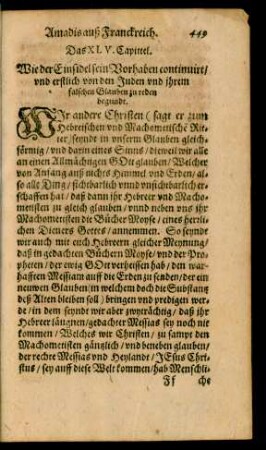 Amadis auß Franckreich. 449
Das XLV. Capittel.
Wie der Einsidel sein Vorhaben continuirt/
vnd erstlich von den Juden vnd ihrem
falschen Glauben zu reden
begundt.
WIr andere Christen (sagt er zum
Hebreischen vnd Machometische Rit-
ter/seyndt in vnserm Glauben gleich-
förmig/ vnd darin eines Sinns/ dieweil wir alle
an einen Allmächtigen GOtt glauben/ Welcher
von Anfang auß nichts Himmel vnd Erden/ al-
so alle Ding/ sichtbarlich vnnd vnsichtbarlich er-
schaffen hat/ daß dann ihr Hebreer vnd Macho-
metisten zu gleich glauben/ vnnd neben vns ihr
Machometisten die Bücher Moyse/ eines herrli-
chen Dieners Gottes/ annemmen. So seyndt
wir auch mit euch Hebreern gleicher Meynung/
daß in gedachten Büchern Moyse/ vnd der Pro-
pheten/ der ewig GOtt verheissen hab/ den war-
hafften Messiam auff die Erden zu senden/ der ein
neuwen Glauben/ in welchem doch die Substantz
deß Alten bleiben soll/ bringen vnd predigen wer-
de/ in dem seyndt wir aber zwyträchtig/ daß ihr
Hebreer läugnen/ gedachter Messias sey noch nit
kommen/ Welches wir Christen/ zu sampt den
Machometisten gäntzlich/ vnd beneben glauben/
der rechte Messias vnd Heylandt/ JEsus Chri-
stus/ sey auff diese Welt kommen/ hab Menschli-
Ff che